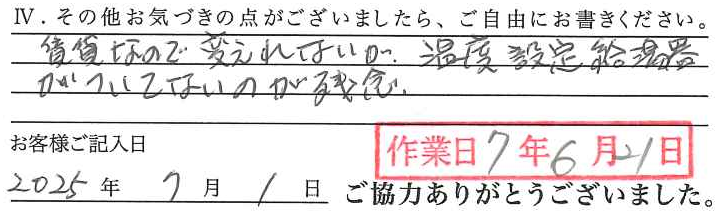 Ⅳ．その他お気づきの点がございましたら、ご自由にお書きください。
賃貸なので変えれないが、温度設定給湯器
がついてないのが残念。
お客様ご記入日
作業日7年6月21日
2025年7月1日 ご協力ありがとうございました。